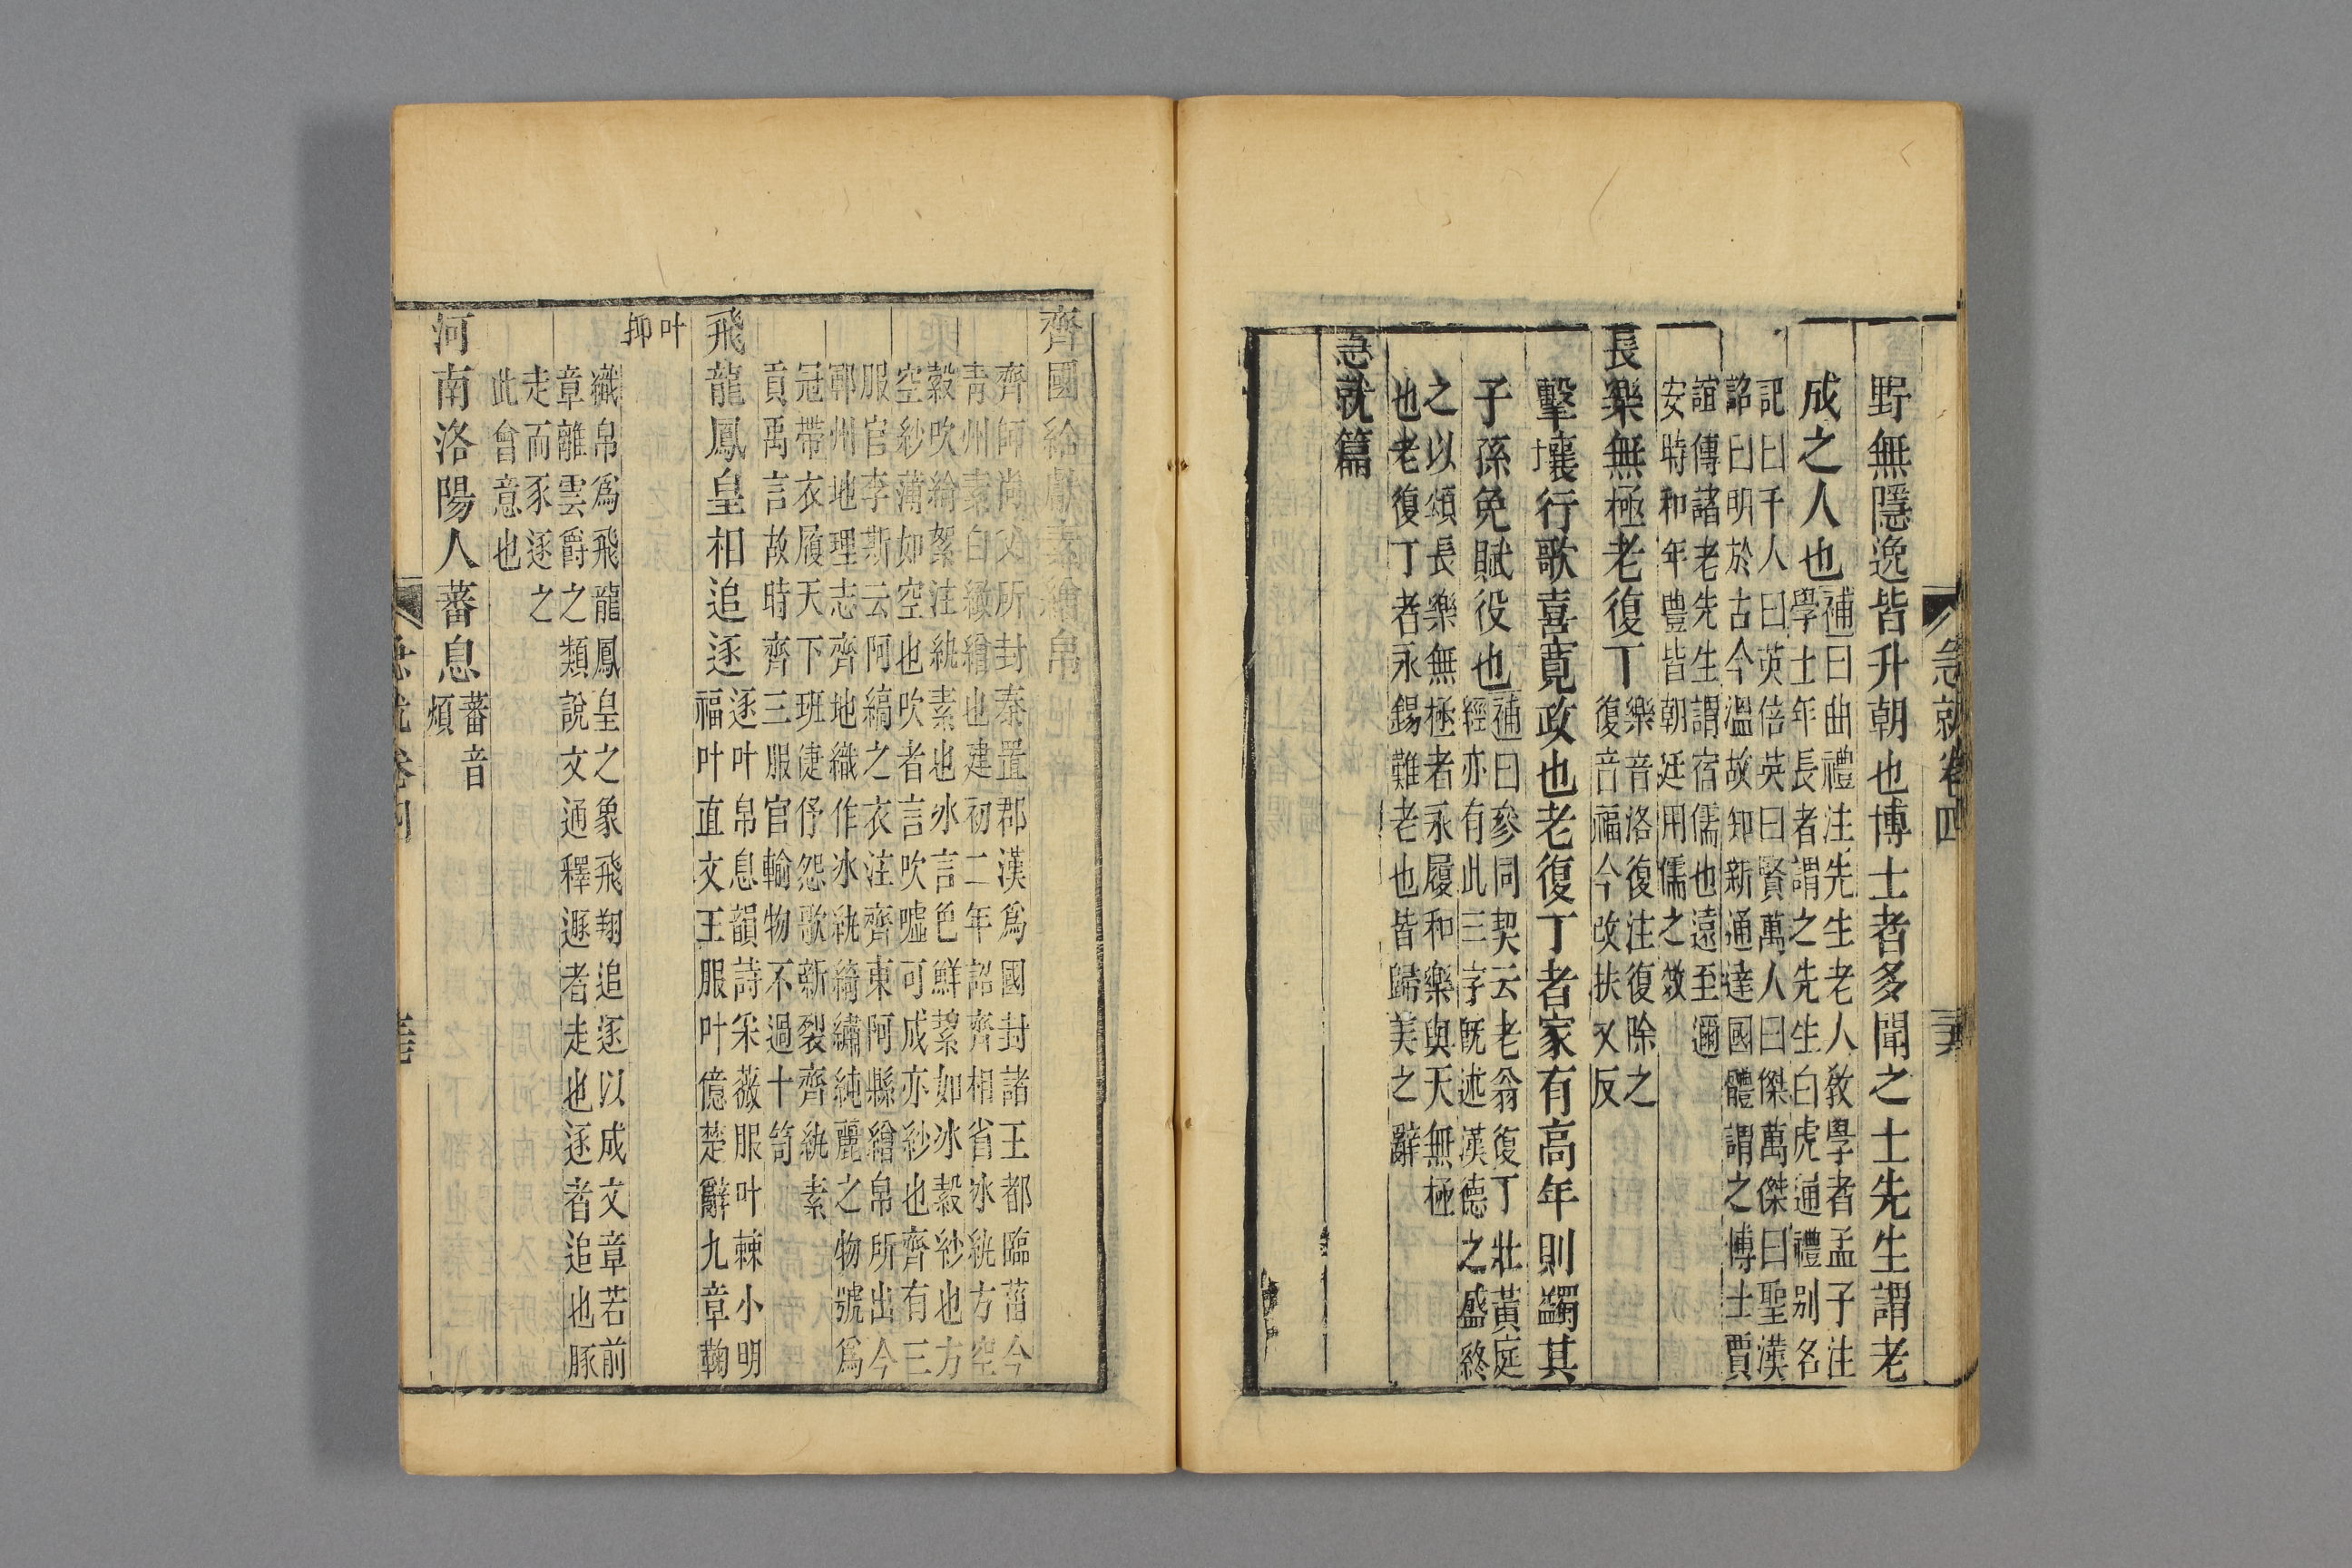 急就卷四
野無隱逸皆升朝也博士者多聞之士先生謂老
成之人也
補曰曲禮注先生老人敎學者孟子注
學士年長者謂之先生白虎通禮别名
記曰千人曰英倍英曰賢萬人曰傑萬傑曰聖漢
詔曰明於古今溫故知新通達國體謂之博士賈
誼傳諸老先生謂宿儒也遠至邇
安時和年豐皆朝廷用儒之效
長樂無極老復丁
樂音洛復注復除之
復音福今改扶又反
擊壤行歌喜寬政也老復丁者家有高年則蠲其
子孫免賦役也
補曰參同契云老翁復丁壯黃庭
經亦有此三字旣述漢德之盛終
之以頌長樂無極者永履和樂與天無極
也老復丁者永錫難老也皆歸美之辭
急就篇
齊國給獻素繒帛
齊師尚父所封泰置郡漢爲國封諸王都臨菑今
青州素白緻繒也建初二年詔齊相省冰紈方空
縠吹綸絮注紈素也冰言色鮮絜如冰縠紗也方
空紗薄如空也吹者言吹噓可成亦紗也齊有三
服官李斯云阿縞之衣注齊東阿縣繒帛所出今
鄆州地理志齊地織作冰紈綺繡純麗之物號爲
冠帶衣履天下班倢伃怨歌新裂齊紈素
貢禹言故時齊三服官輸物不過十笥
飛龍鳳皇相追逐
逐叶帛息韻詩采薇服叶棘小明
福叶直文王服叶億楚辭九章鞠
叶
抑
織帛爲飛龍鳳皇之象飛翔追逐以成文章若前
章離雲爵之類說文通釋遯者走也逐者追也豚
走而豕逐之
此會意也
河南洛陽人蕃息
蕃音
煩
急就卷四